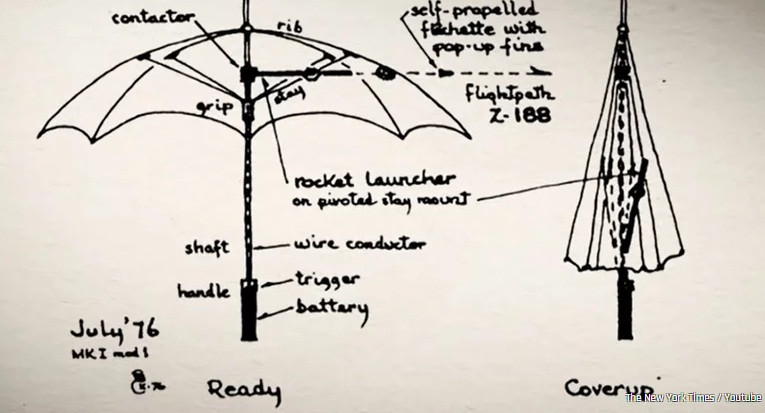 contactor
rib
self-propelled
flechette with
pop-up fins
grip
stay
flightpath
Z-188
rocket launcher
on pivoted stay mount
shaft
wire conductor
trigger
handle
battery
July '76
MK I mod 1
Ready
Coverup
The New York Times / Youtube